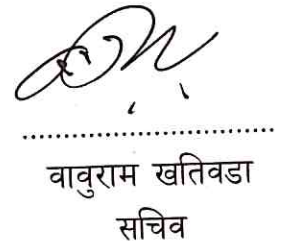 ..............................
वावुराम खतिवडा
सचिव